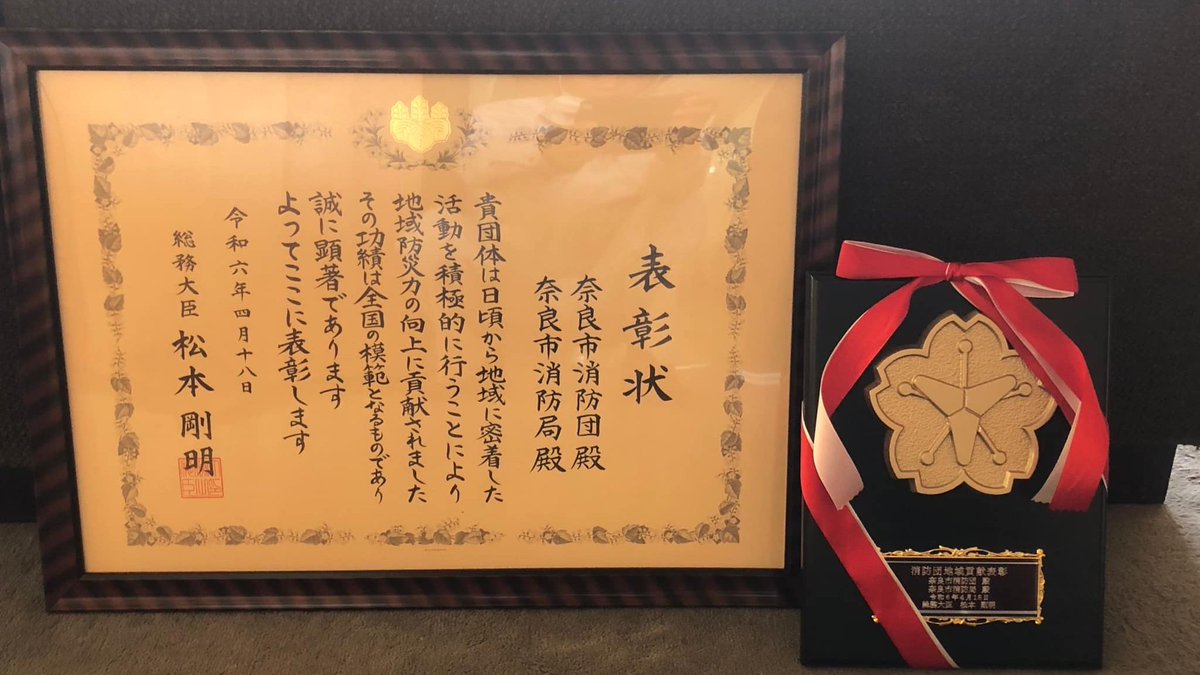 表彰状
奈良市消防団殿
奈良市消防局殿
貴団体は日頃から地域に密着した
活動を積極的に行うことにより
地域防災力の向上に貢献されました
その功績は全国の模範となるものであり
誠に顕著であります
よってここに表彰します
令和六年四月十八日
総務大臣 松本剛明
消防団地域貢献表彰
奈良市消防団 殿
奈良市消防局 殿
令和6年4月18日
総務大臣 松本 剛明